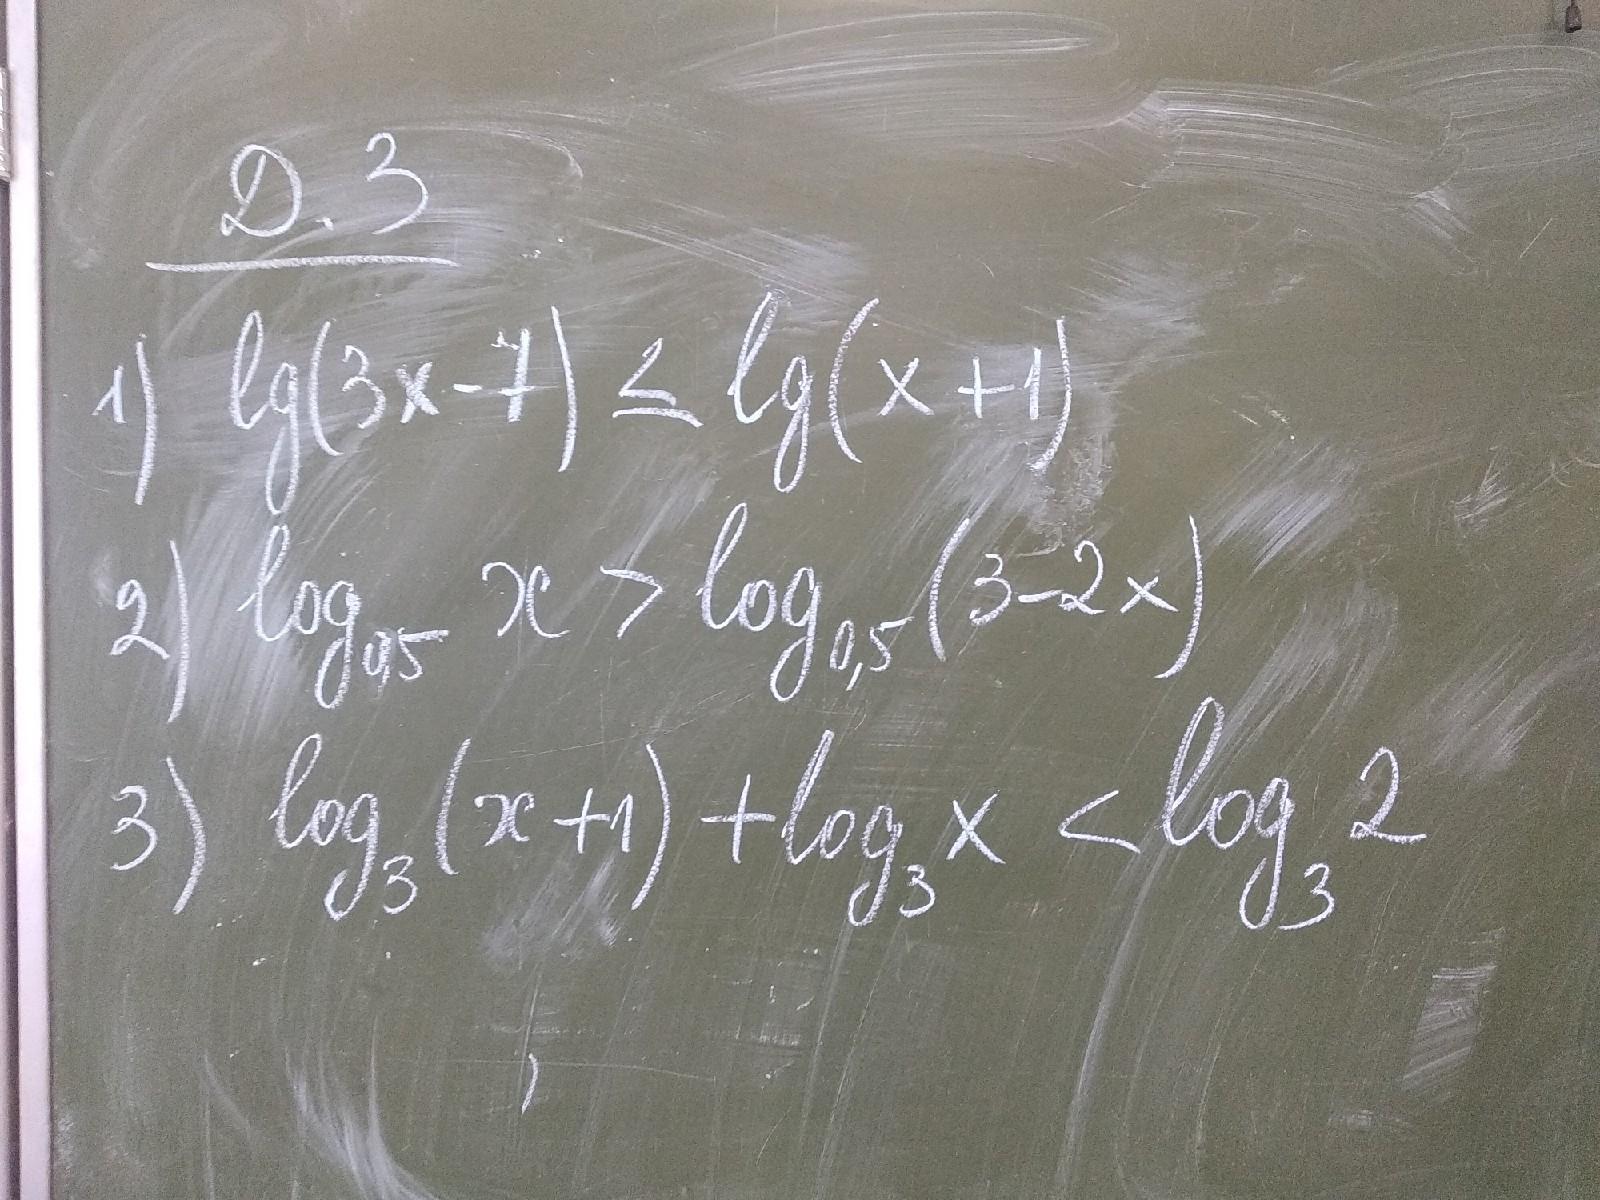 Д.З
1) lg(3x-7) ≤ lg(x+1)
2) log₀,₅ x > log₀,₅(3-2x)
3) log₃(x+1) + log₃x < log₃2